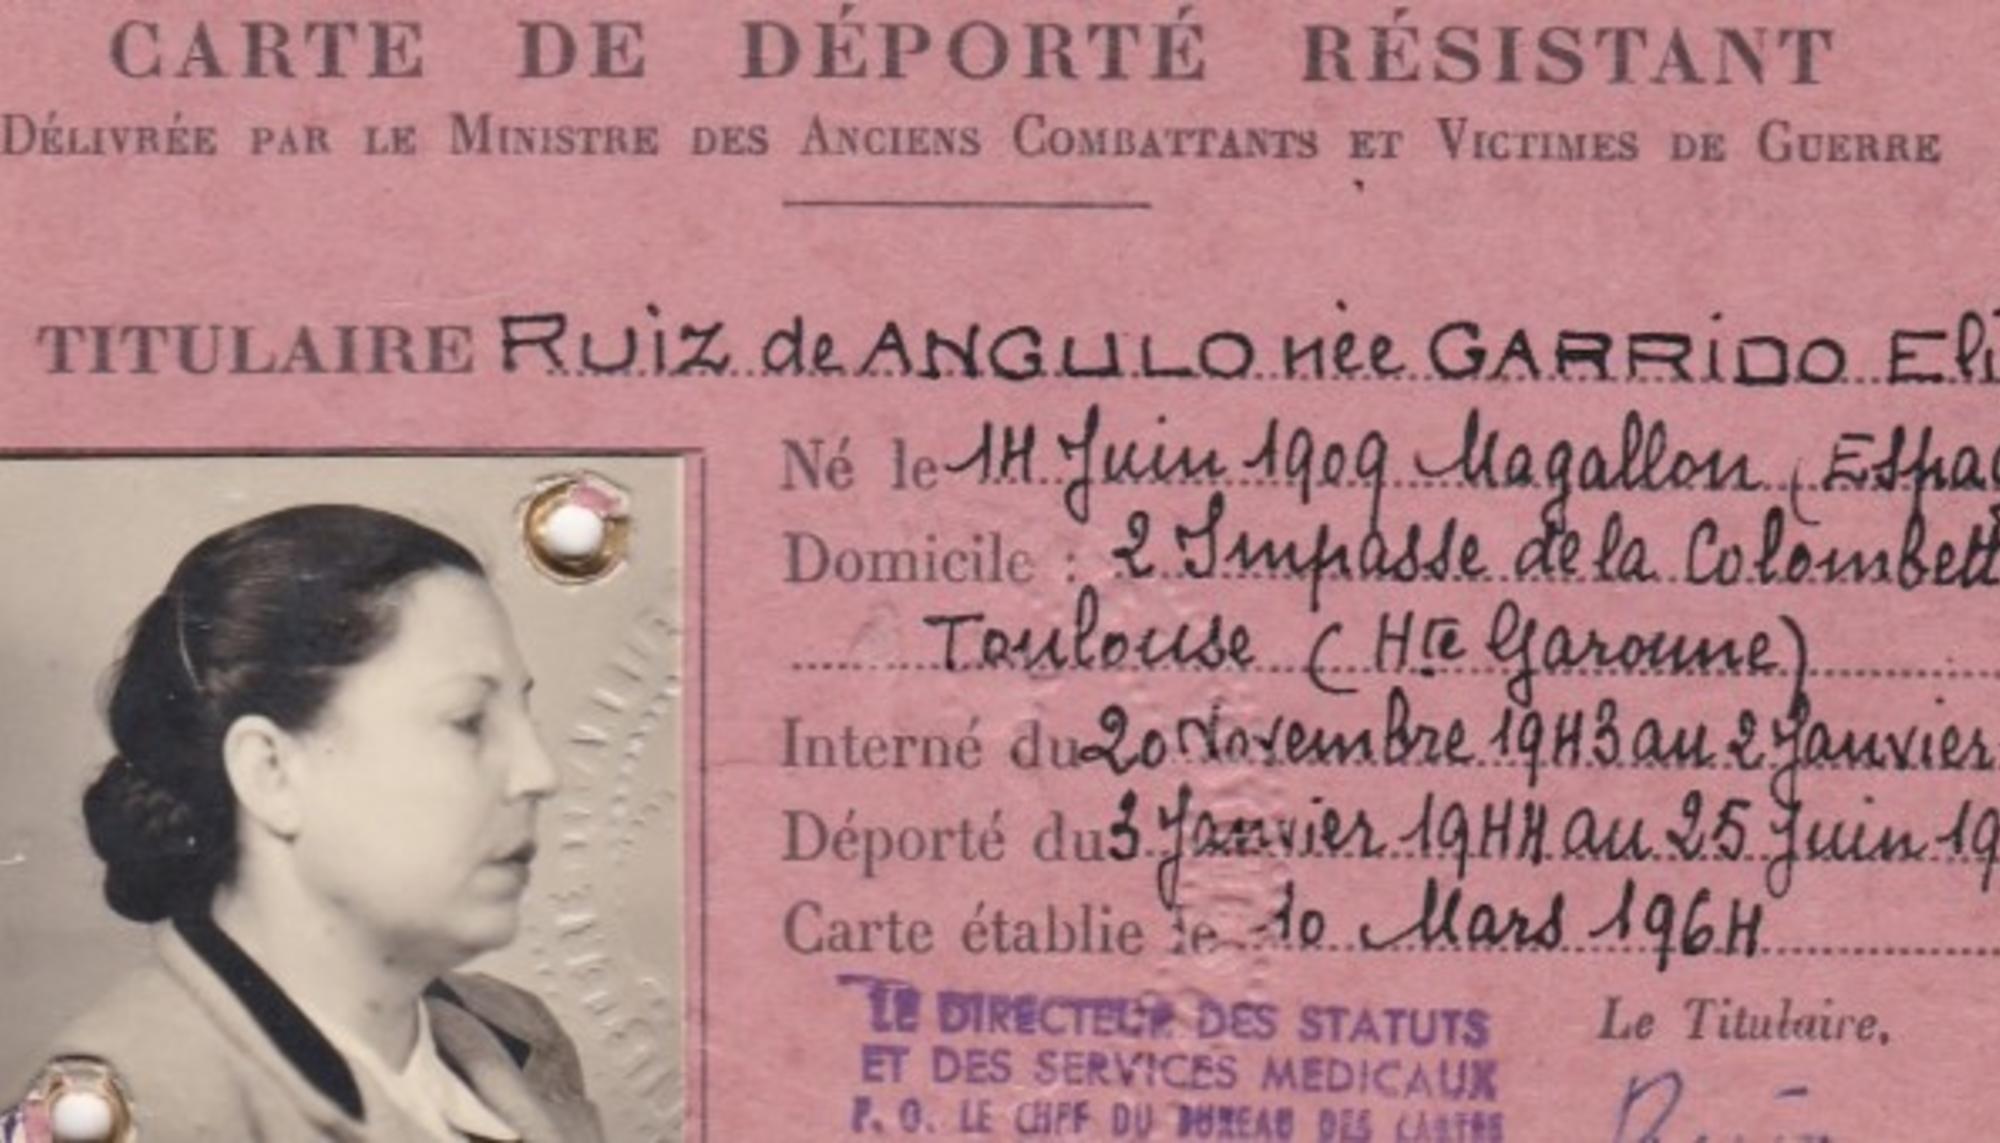 CARTE DE DÉPORTÉ RÉSISTANT
DÉLIVRÉE PAR LE MINISTRE DES ANCIENS COMBATTANTS ET VICTIMES DE GUERRE
TITULAIRE RUIZ de ANGULO née GARRIDO Eli
Né le 14 Juin 1909 Magallon (Espag
Domicile : 2 Impasse de la Colombett
Toulouse (Hte Garonne)
Interné du 20 Novembre 1943 au 2 Janvier
Déporté du 3 Janvier 1944 au 25 Juin 19
Carte établie le 10 Mars 1964
LE DIRECTEUR DES STATUTS
Le Titulaire,
ET DES SERVICES MEDICAUX
P. O. LE CHEF DU BUREAU DES CARTES